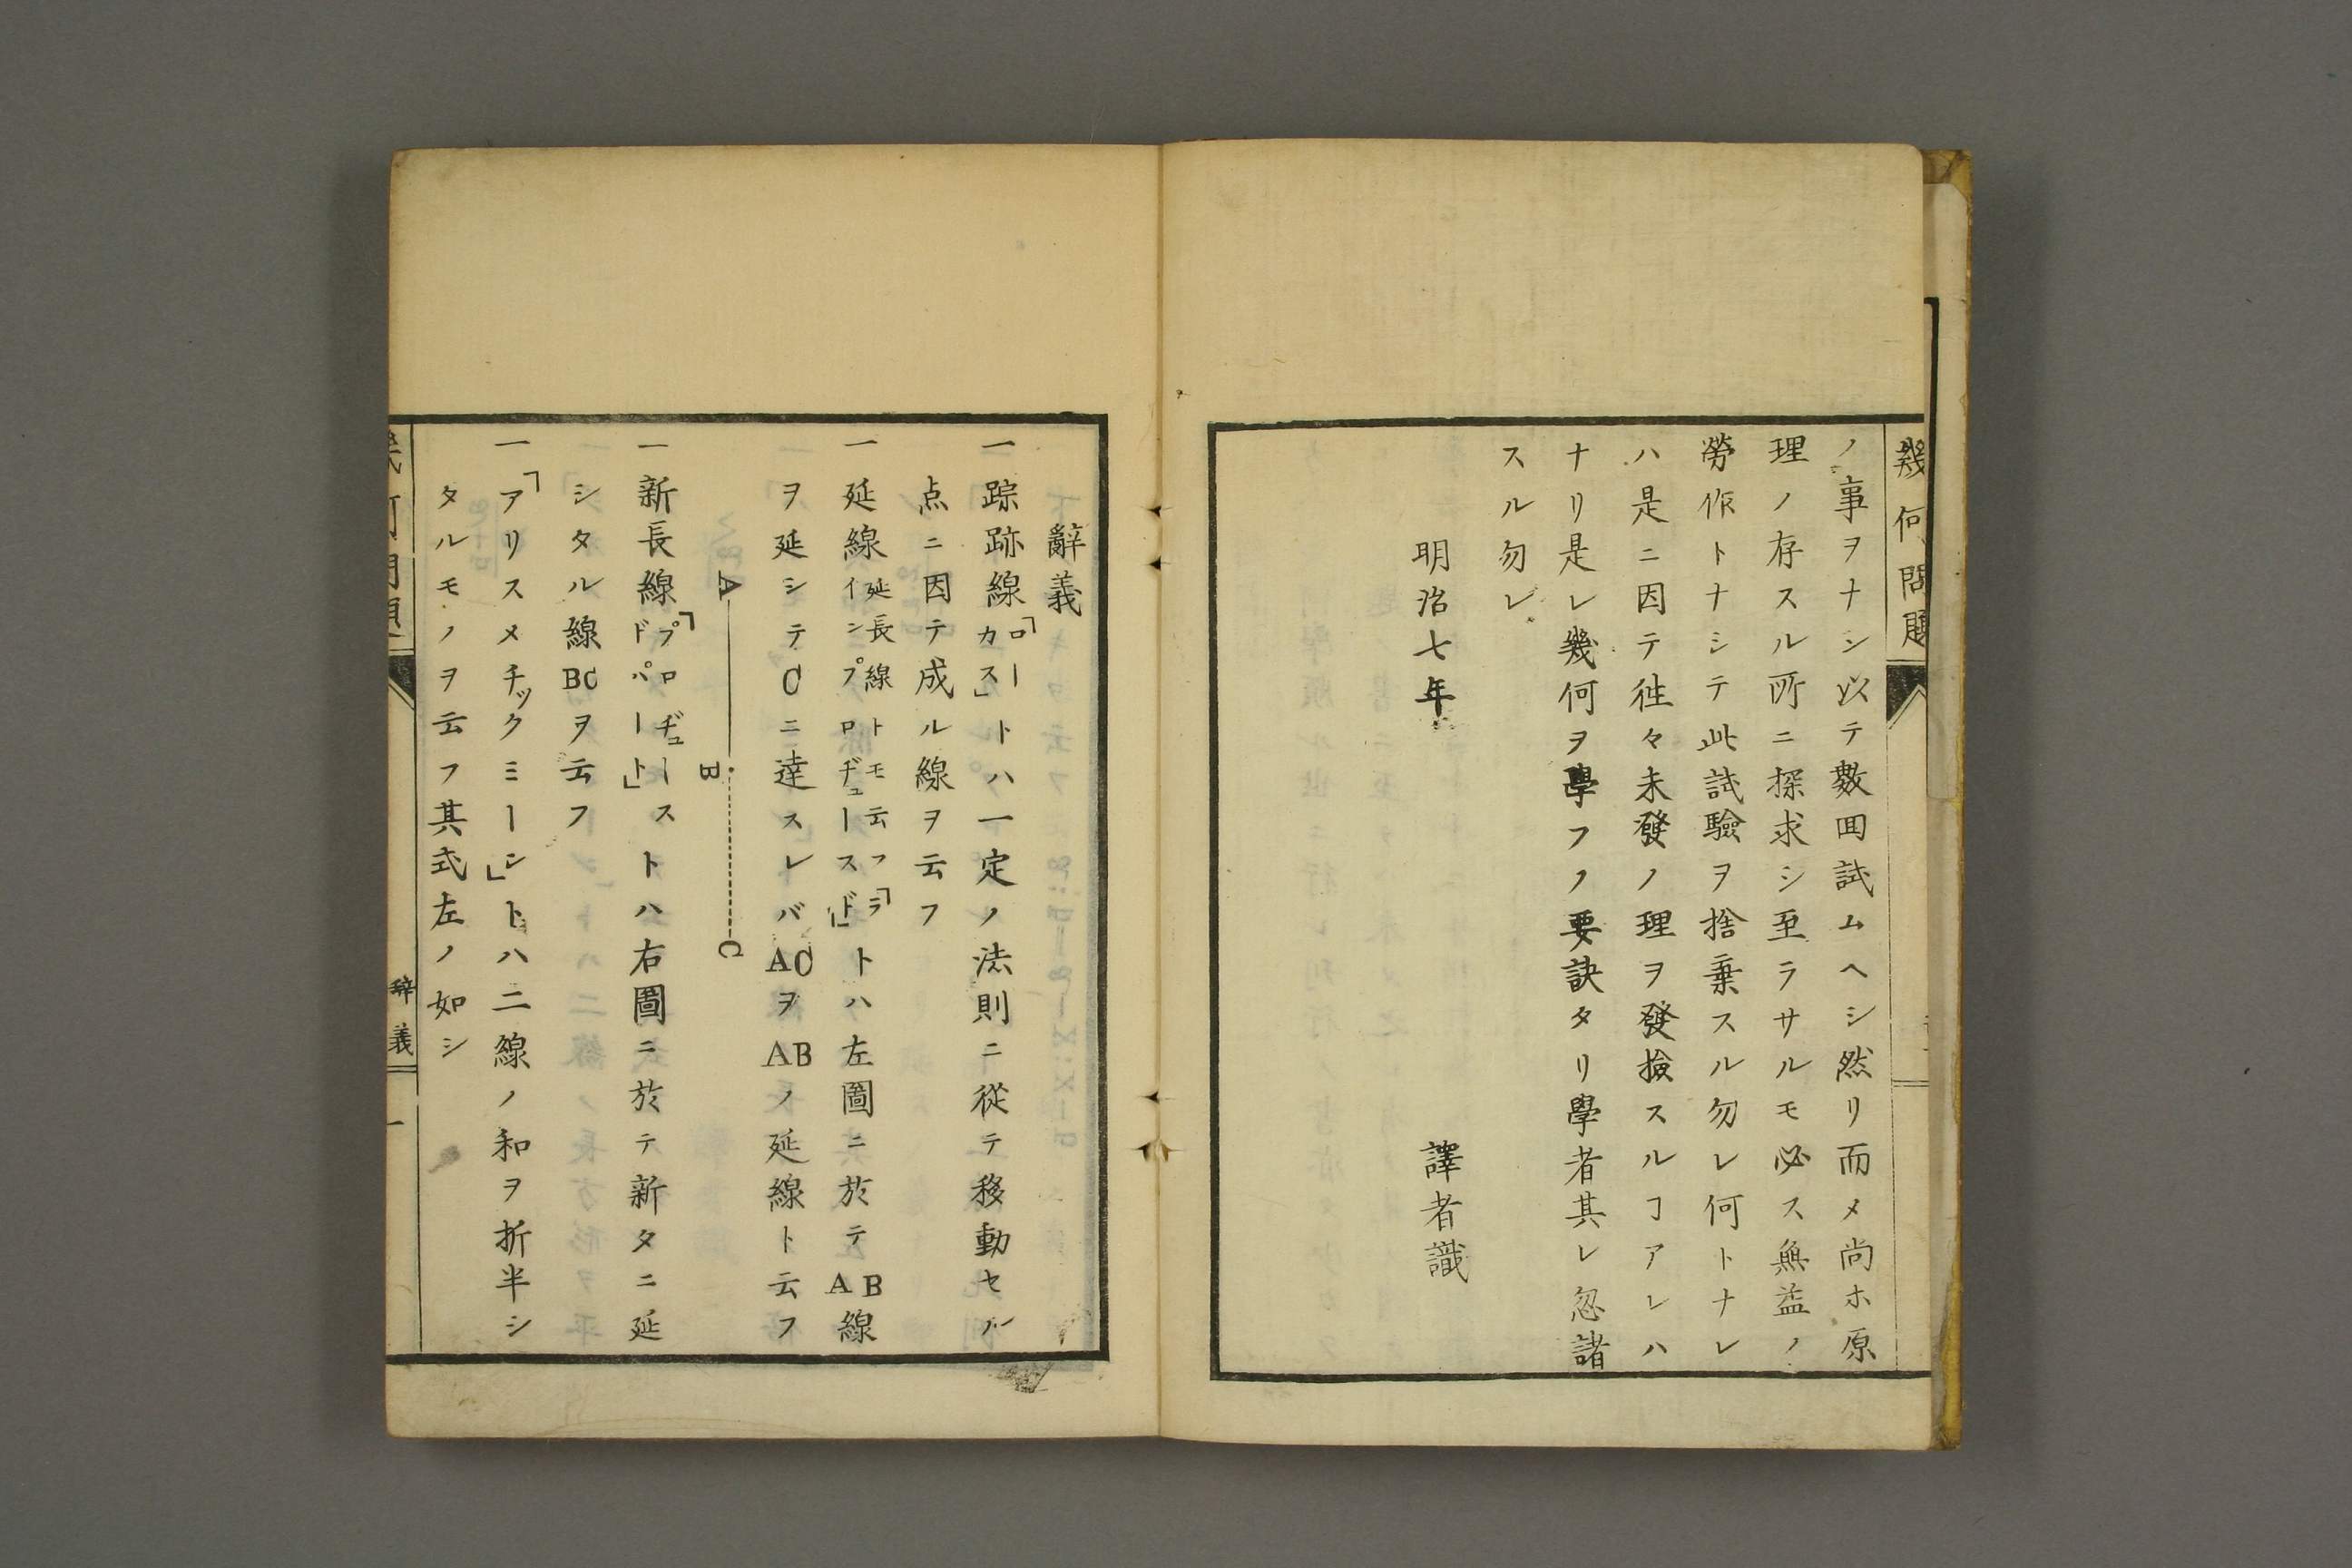 幾何問題
ノ事ヲナシ以テ數回試ムヘシ然リ而メ尚ホ原
理ノ存スル所ニ探求シ至ラサルモ必ス無益ノ
勞作トナシテ此試驗ヲ捨棄スル勿レ何トナレ
ハ是ニ因テ徃々未發ノ理ヲ發撿スルヿアレハ
ナリ是レ幾何ヲ學フノ要訣タリ學者其レ忽諸
スル勿レ
明治七年
譯者識
辭義
一踪跡線「ローカス」トハ一定ノ法則ニ從テ移動セル
点ニ因テ成ル線ヲ云フ
一延線延長線トモ云フ「ラインプロヂュースド」トハ左圖ニ於テAB線
ヲ延シテCニ達スレバACヲABノ延線ト云フ
A B C
一新長線「プロヂュースドパート」トハ右圖ニ於テ新タニ延
シタル線BCヲ云フ
一「アリスメチックミーン」トハ二線ノ和ヲ折半シ
タルモノヲ云フ其式左ノ如シ
辭義
一